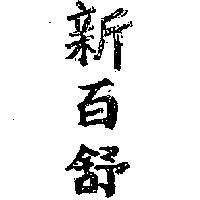 新百舒